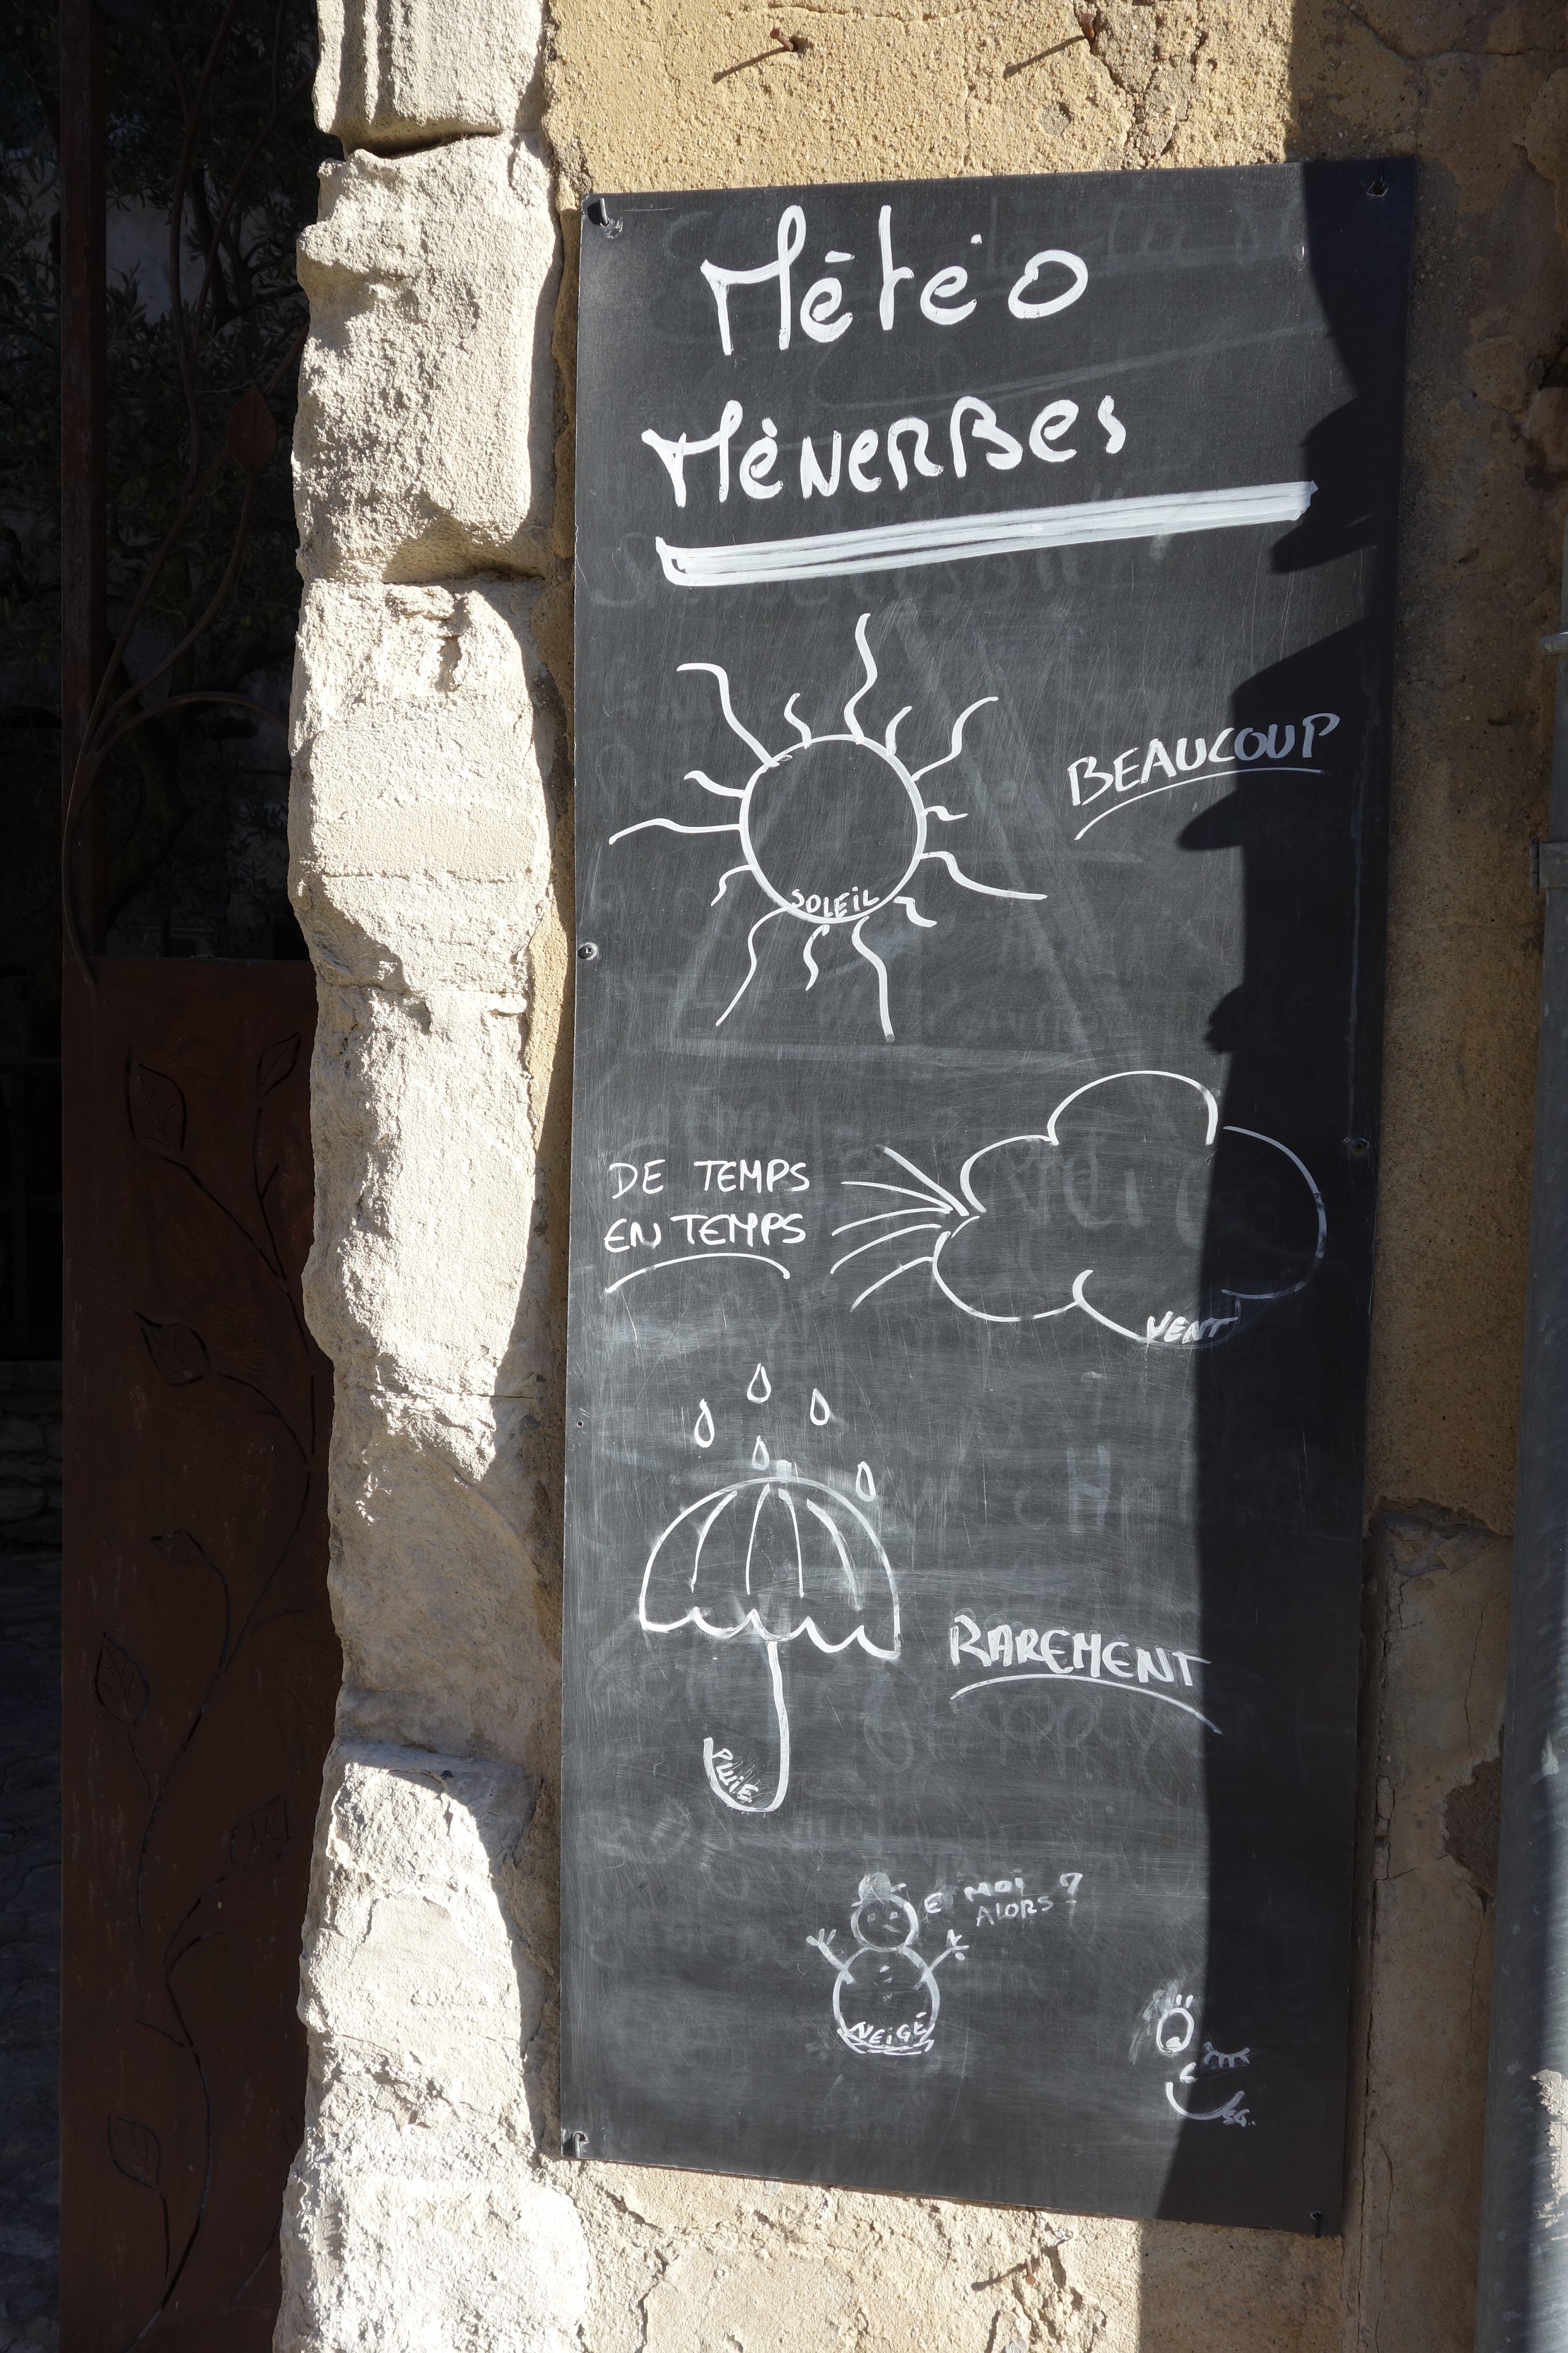 Météo
MéNeRBes
BEAUCOUP
SOLEiL
DE TEMPS
EN TEMPS
VENT
RAREMENT
PLUiE
ET MOi
ALORS ?
NEiGE